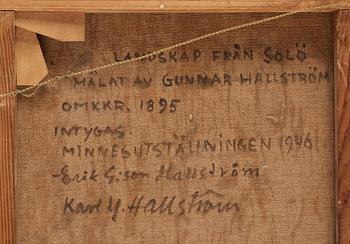 LANDSKAP FRÅN SOLÖ
MÅLAT AV GUNNAR HALLSTRÖM
OMKKR. 1895
INTYGAS.
MINNESUTSTÄLLNINGEN 1946
Erik G:son Hallström
Karl Y. Hallström